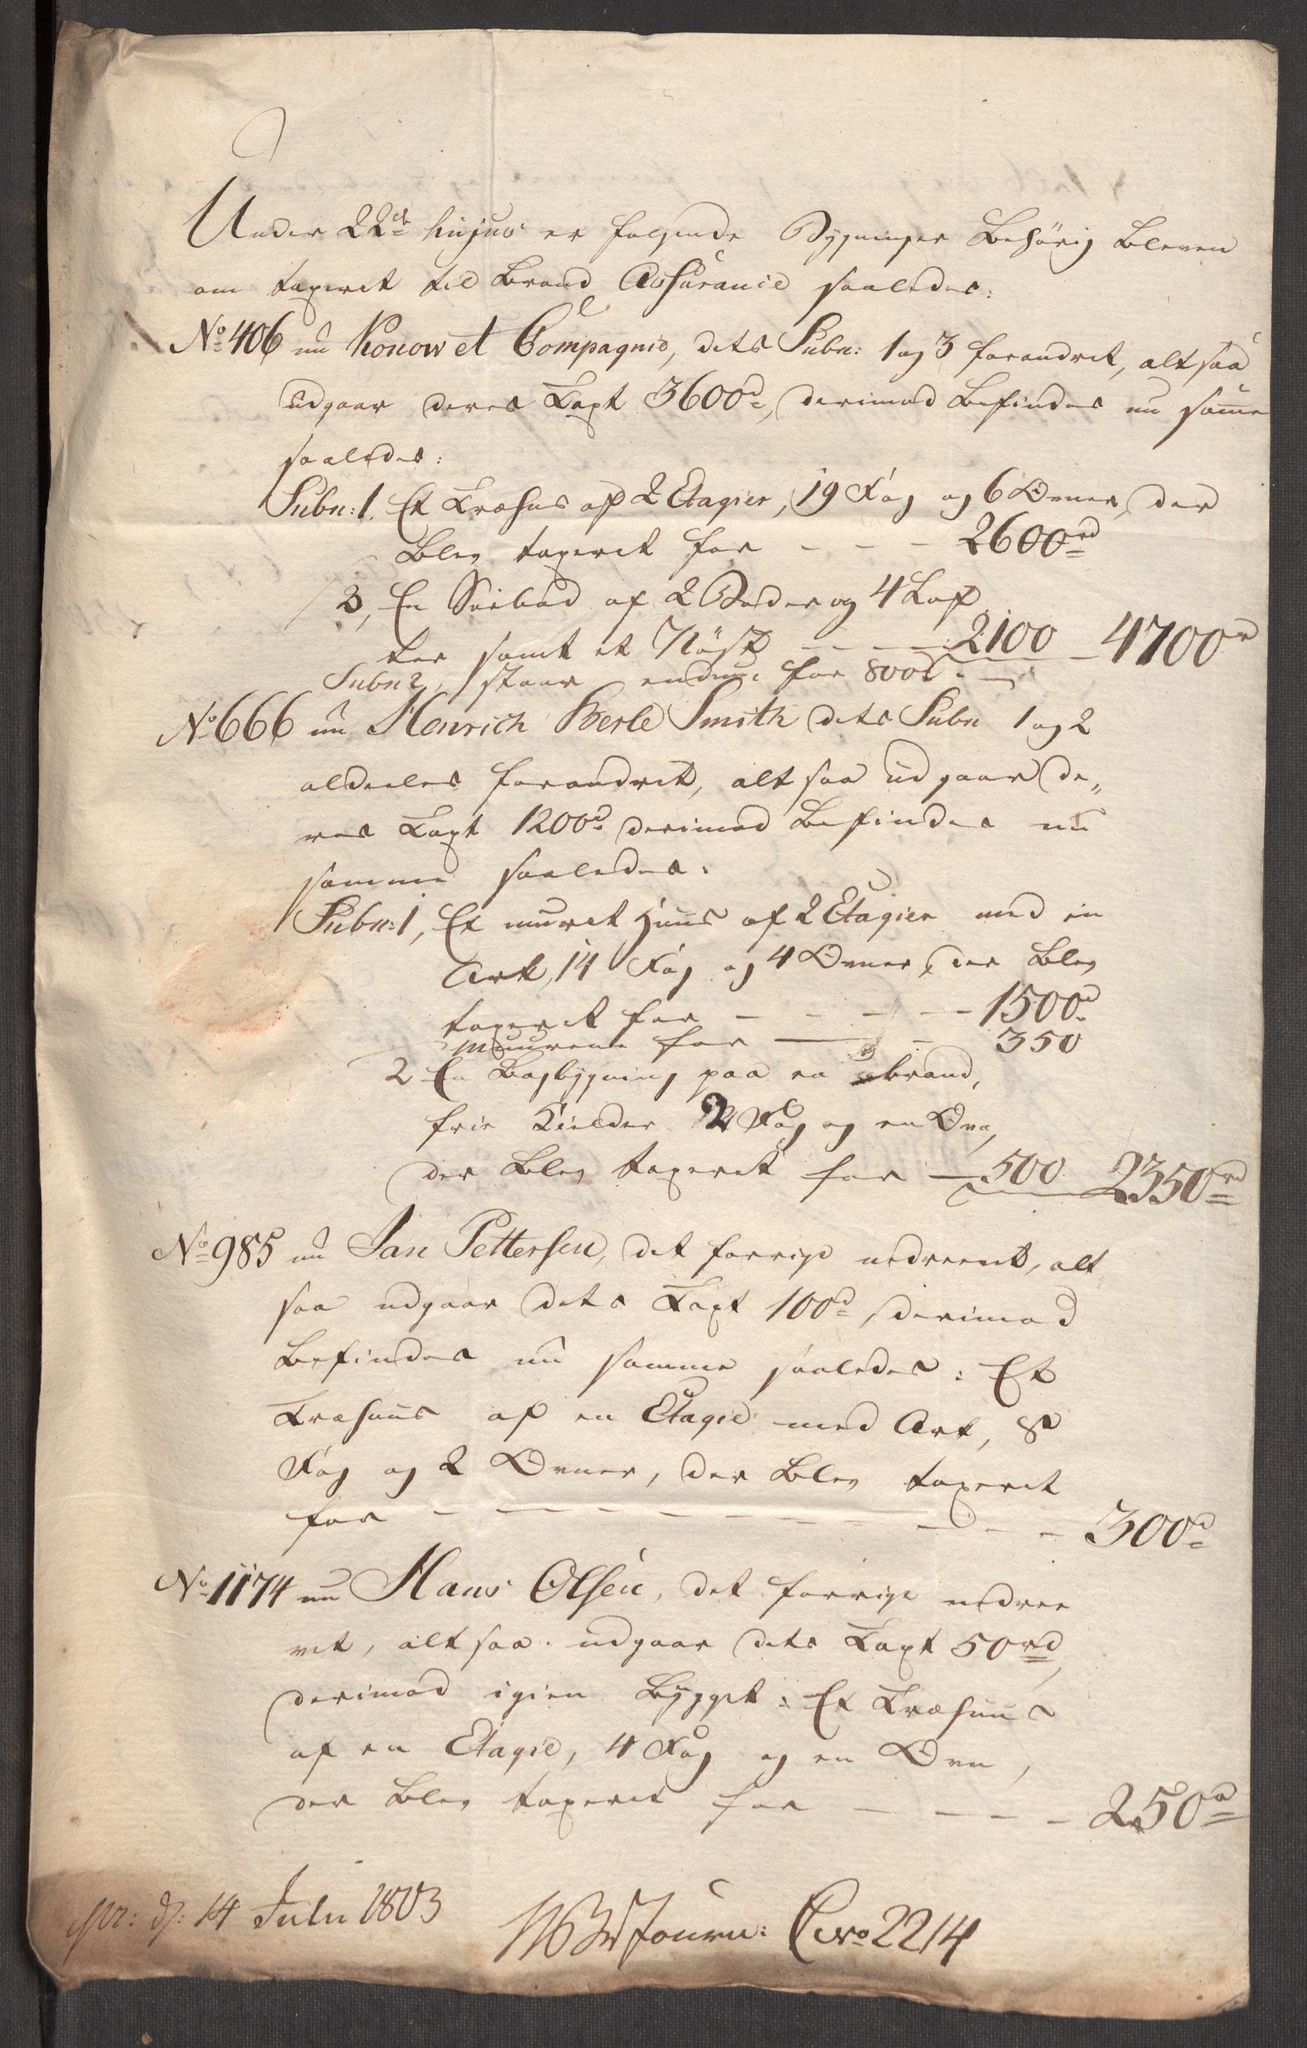 Under 22de hujus er følgende Bygninger Behörig Bleven
om taxeret til Brand Assurance saaledes:
No 406 nu Konow et Compagnie, dets Subn: 1 og 3 forandret, alt saa
udgaar deres Taxt 3600d, derimod Befindes nu samme
saaledes:
Subn: 1. Et Træhus af 2 Etagier, 19 Fag og 6 Ovner, der
Blev taxeret for - - - 2600rd
3, En Söebod af 2 Boder og 4 Lof
ter samt et Nöst - - - 2100 - 4700rd
Subn 2, staar endnu for 800d. -
No 666 nu Henrich Berle Smith dets Subn 1 og 2
aldeeles forandret, alt saa udgaar de„
res Taxt 1200d derimod Befindes nu
samme saaledes:
Subn: 1, Et muret Huus af 2 Etagier med en
Ark, 14 Fag og 4 Ovner, der Blev
taxeret for - - - - - 1500d
Muurene for - - 350
2 En Bagbygning paa en brand,
frie Kielder 2 Fag og en Ovn,
der Blev taxeret for - 500 2350rd
No 985 nu Jan Pettersen, det forrige nedreevet, alt
saa udgaar dets Taxt 100d, derimod
Befindes nu samme saaledes: Et
Træhuus af en Etagie med Ark, 8
Fag og 2 Ovner, der Blev taxeret
for - - - - - - - - - - 300d
No 1174 nu Hans Olsen, det forrige nedree
vet, alt saa udgaar dets Taxt 50rd,
derimod igien Bygget: Et Træhuus
af en Etagie, 4 Fag og en Ovn,
der Blev taxeret for - - - - 250d
pr: d: 14 Julii 1803 Journ: No 2214